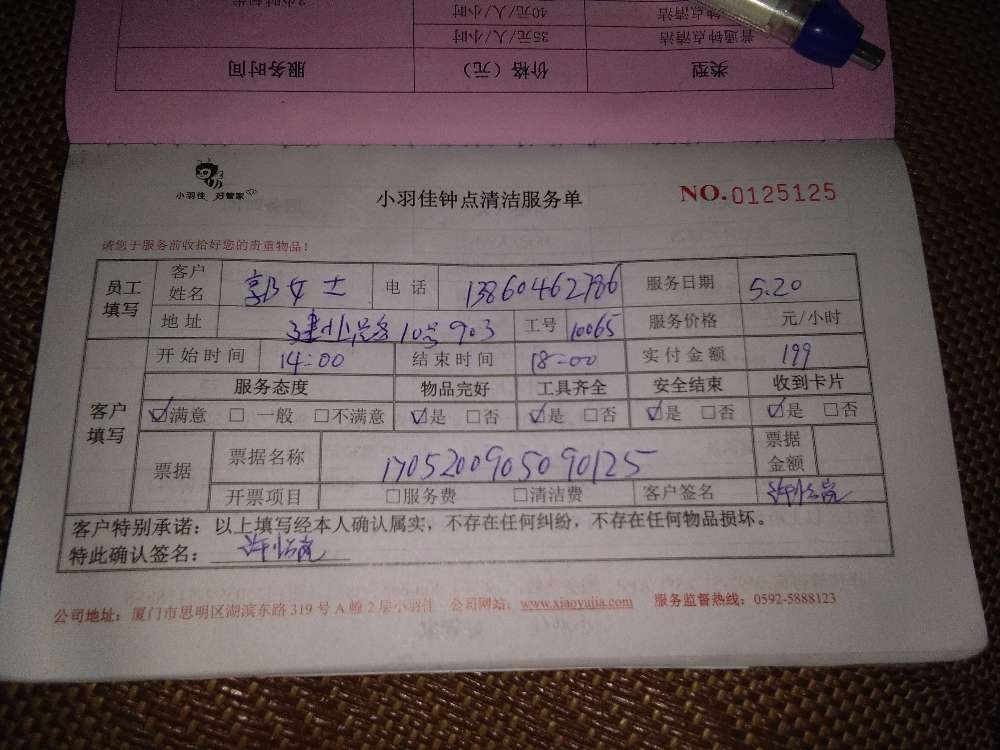 2小时起步
钟点清洁 40元/人/小时
普通钟点清洁 35元/人/小时
类型 价格（元） 服务时间
小羽佳 好管家
小羽佳钟点清洁服务单 NO.0125125
请您于服务前收拾好您的贵重物品！
员工填写 客户姓名 郭女士 电话 13860462786 服务日期 5.20
地址 10号903 工号 10065 服务价格 元/小时
客户填写 开始时间 14:00 结束时间 18:00 实付金额 199
服务态度 物品完好 工具齐全 安全结束 收到卡片
☑满意 □一般 □不满意 ☑是 □否 ☑是 □否 ☑是 □否 ☑是 □否
票据 票据名称 170520090509 0125 票据金额
开票项目 □服务费 □清洁费 客户签名
客户特别承诺：以上填写经本人确认属实，不存在任何纠纷，不存在任何物品损坏。
特此确认签名：
公司地址：厦门市思明区湖滨东路319号A幢2层小羽佳 公司网站：www.xiaoyujia.com 服务监督热线：0592-5888123